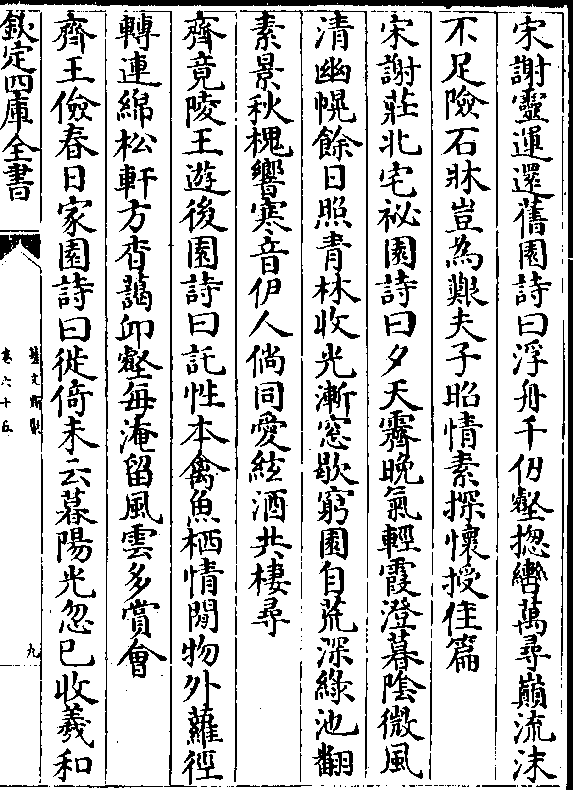 宋謝靈運還舊園詩曰浮舟千仞壑揔轡萬尋巔流沫
不足險石牀豈為艱夫子昭情素探懷授徃篇
宋謝莊北宅祕園詩曰夕天霽晚氣輕霞澄暮陰微風
清幽幌餘日照青林收光漸窓歇窮園自荒深綠池翻
素景秋槐響寒音伊人倘同愛絃酒共棲尋
齊竟陵王遊後園詩曰託性本禽魚栖情閒物外蘿徑
轉連綿松軒方杳藹邱壑每淹留風雲多賞會
齊王儉春日家園詩曰徙倚未云暮陽光忽已收羲和
欽定四庫全書
藝文類聚
卷六十五
九